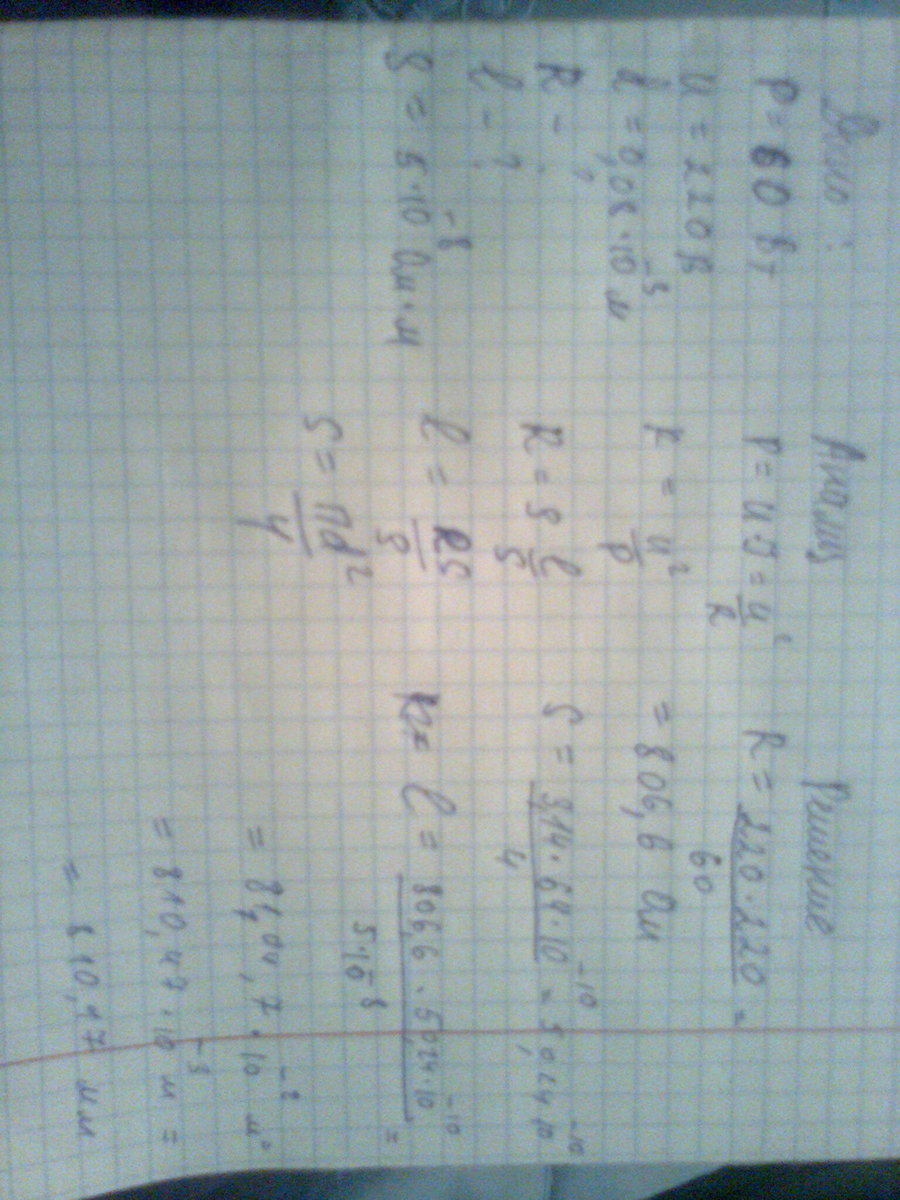 Дано:
P = 60 Вт
U = 220 В
d = 0,08 · 10⁻³ м
R - ?
l - ?
ρ = 5 · 10⁻⁸ Ом · м
Анализ
P = UI = U²/R
R = U²/P
R = ρ l/S
l = RS/ρ
S = πd²/4
Решение
R = 220 · 220/60 =
= 806,6 Ом
S = 3,14 · 64 · 10⁻¹⁰/4 = 50,24 · 10⁻¹⁰
l = 806,6 · 50,24 · 10⁻¹⁰/5 · 10⁻⁸ =
= 8104,7 · 10⁻² м
= 810,47 · 10⁻³ м =
= 810,47 мм